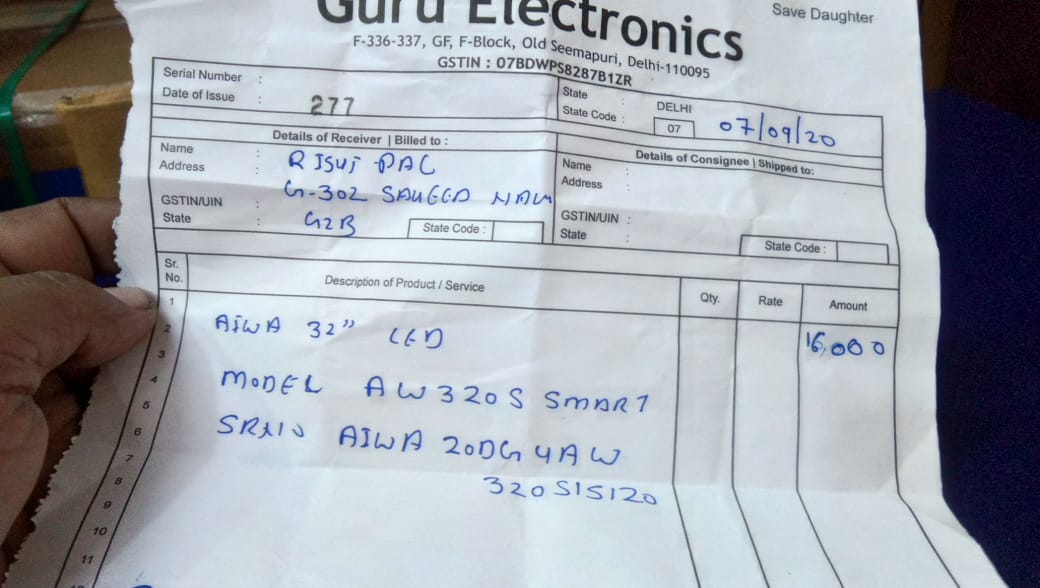 Guru Electronics
Save Daughter
F-336-337, GF, F-Block, Old Seemapuri, Delhi-110095
GSTIN : 07BDWPS8287B1ZR
Serial Number :
Date of Issue : 277
State : DELHI
State Code : 07
07/09/20
Details of Receiver | Billed to :
Name :
Address :
G-302
GSTIN/UIN :
State : GZB
State Code :
Details of Consignee | Shipped to:
Name :
Address :
GSTIN/UIN :
State :
State Code :
Sr. No.
Description of Product / Service
Qty.
Rate
Amount
1
2
3
4
5
6
7
8
9
10
11
AIWA 32" LED
16,000
MODEL AW320S SMART
SRNO AIWA 20DG4AW
320S15120